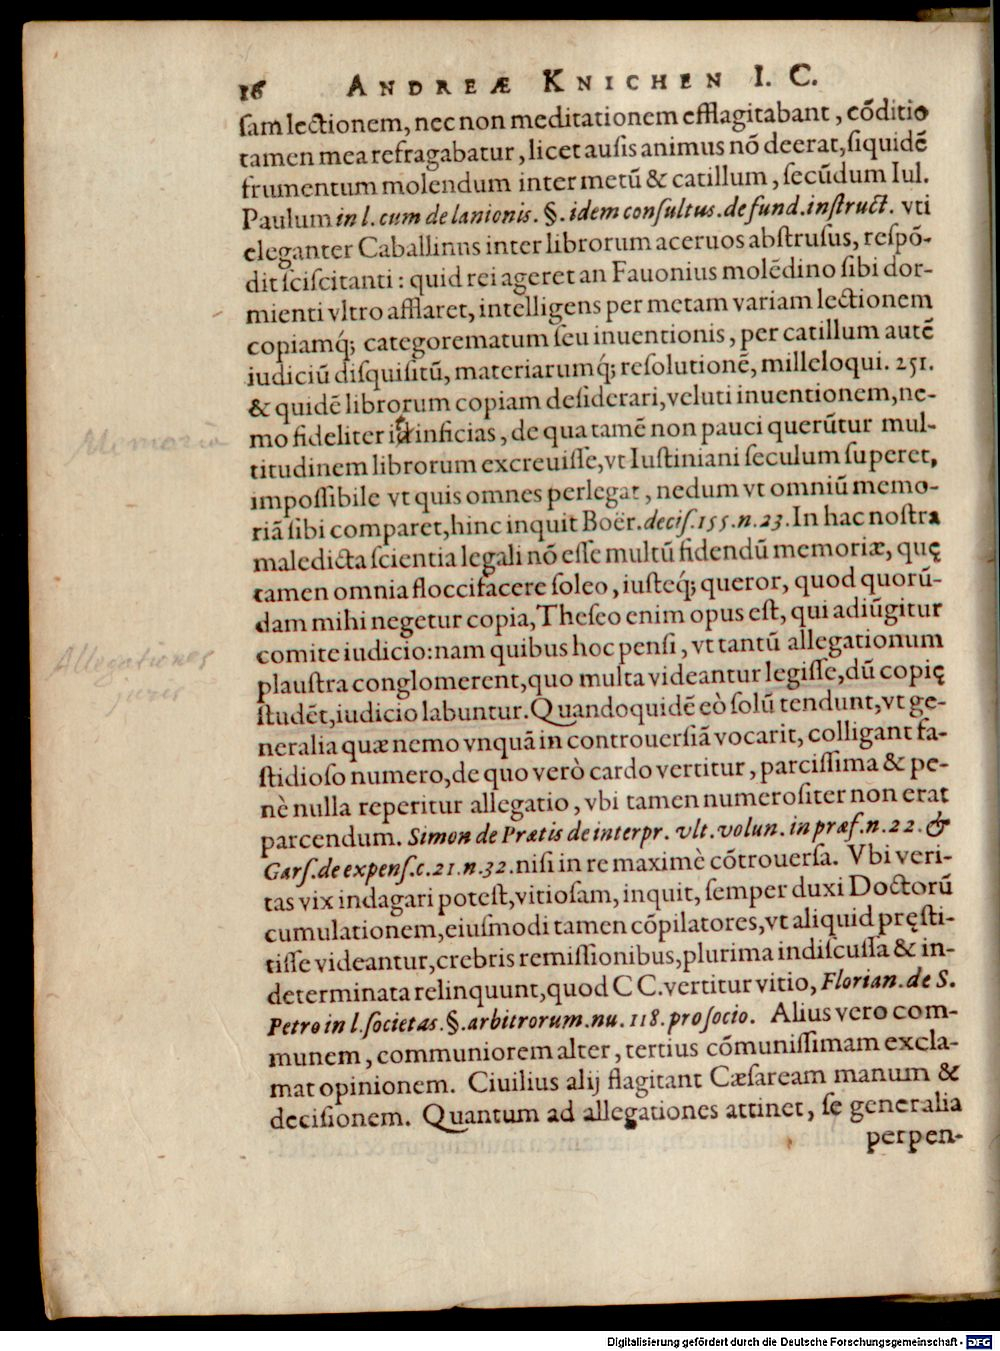 16 ANDREÆ KNICHEN I. C.
ſam lectionem, nec non meditationem efflagitabant, cõditio
tamen mea refragabatur, licet auſis animus nõ deerat, ſiquidẽ
frumentum molendum inter metũ & catillum, ſecũdum Iul.
Paulum in l. cum de lanionis. §. idem conſultus. de fund. inſtruct. vti
eleganter Caballinus inter librorum aceruos abſtruſus, reſpõ-
dit ſciſcitanti: quid rei ageret an Fauonius molẽdino ſibi dor-
mienti vltro afflaret, intelligens per metam variam lectionem
copiamq́; categorematum ſeu inuentionis, per catillum autẽ
iudiciũ diſquiſitũ, materiarumq́; reſolutionẽ, milleloqui. 251.
& quidẽ librorum copiam deſiderari, veluti inuentionem, ne-
Memoria
mo fideliter it inficias, de qua tamẽ non pauci querũtur mul-
titudinem librorum excreuiſſe, vt Iuſtiniani ſeculum ſuperet,
impoſſibile vt quis omnes perlegat, nedum vt omniũ memo-
riã ſibi comparet, hinc inquit Boër. deciſ. 155. n. 23. In hac noſtra
maledicta ſcientia legali nõ eſſe multũ fidendũ memoriæ, quę
tamen omnia floccifacere ſoleo, iuſteq́; queror, quod quorũ-
dam mihi negetur copia, Theſeo enim opus eſt, qui adiũgitur
Allegationes
comite iudicio: nam quibus hoc penſi, vt tantũ allegationum
juris
plauſtra conglomerent, quo multa videantur legiſſe, dũ copię
ſtudẽt, iudicio labuntur. Quandoquidẽ eò ſolũ tendunt, vt ge-
neralia quæ nemo vnquã in controuerſiã vocarit, colligant fa-
ſtidioſo numero, de quo verò cardo vertitur, parciſſima & pe-
nè nulla reperitur allegatio, vbi tamen numeroſiter non erat
parcendum. Simon de Prætis de interpr. vlt. volun. in præf. n. 22. &
Garſ. de expenſ. c. 21. n. 32. niſi in re maximè cõtrouerſa. Vbi veri-
tas vix indagari poteſt, vitioſam, inquit, ſemper duxi Doctorũ
cumulationem, eiuſmodi tamen cõpilatores, vt aliquid pręſti-
tiſſe videantur, crebris remiſſionibus, plurima indiſcuſſa & in-
determinata relinquunt, quod C C. vertitur vitio, Florian. de S.
Petro in l. ſocietas. §. arbitrorum. nu. 118. pro ſocio. Alius vero com-
munem, communiorem alter, tertius cõmuniſſimam excla-
mat opinionem. Ciuilius alij flagitant Cæſaream manum &
deciſionem. Quantum ad allegationes attinet, ſe generalia
perpen-
Digitalisierung gefördert durch die Deutsche Forschungsgemeinschaft - DFG